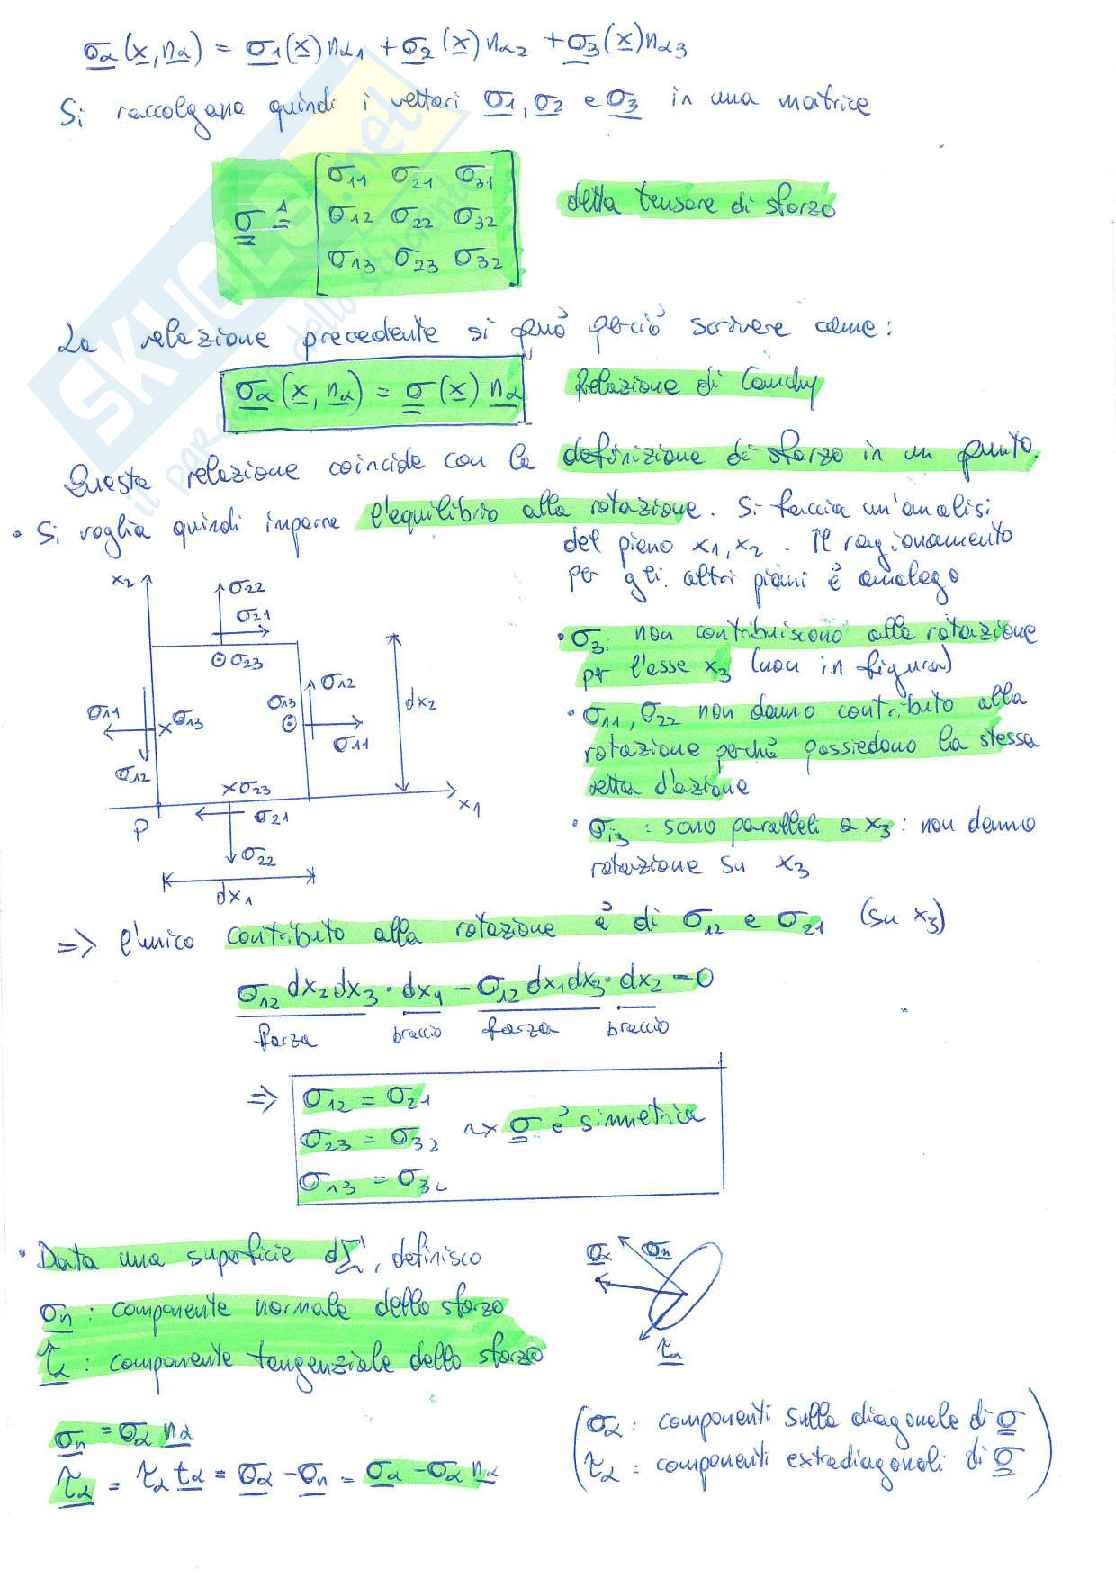 σα(x,nα) = σ1(x)nα1 + σ2(x)nα2 + σ3(x)nα3
Si raccolgano quindi i vettori σ1, σ2 e σ3 in una matrice
σ ≜ [σ11 σ21 σ31
σ12 σ22 σ32
σ13 σ23 σ32] detta tensore di sforzo
La relazione precedente si può perciò scrivere come:
σα(x,nα) = σ(x) nα Relazione di Cauchy
Questa relazione coincide con la definizione di sforzo in un punto.
• Si voglia quindi imporre l'equilibrio alla rotazione. Si faccia un'analisi
del piano x1,x2. Il ragionamento
per gli altri piani è analogo
x2 σ22
σ21
σ23
σ12
σ13
σ11
dx2
σ11
σ13
σ12
σ23
x1
P
σ21
σ22
dx1
• σ3: non contribuiscono alla rotazione
pr l'asse x3 (non in figura)
• σ11, σ22 non danno contributo alla
rotazione perché possiedono la stessa
retta d'azione
• σi3: sono paralleli a x3: non danno
rotazione su x3
=> l'unico contributo alla rotazione è di σ12 e σ21 (su x3)
σ12 dx2dx3 · dx1 - σ12 dx1dx3 · dx2 = 0
forza braccio forza braccio
=> σ12 = σ21
σ23 = σ32 ~> σ è simmetrica
σ13 = σ3
• Data una superficie dΣ, definisco
σn: componente normale dello sforzo
τα: componente tangenziale dello sforzo
σα σn
τα
σn = σα nα
τα = τα tα = σα - σn = σα - σα nα
(σα: componenti sulla diagonale di σ
τα: componenti extradiagonali di σ)
SKUOLA.net
il paradiso dello studente